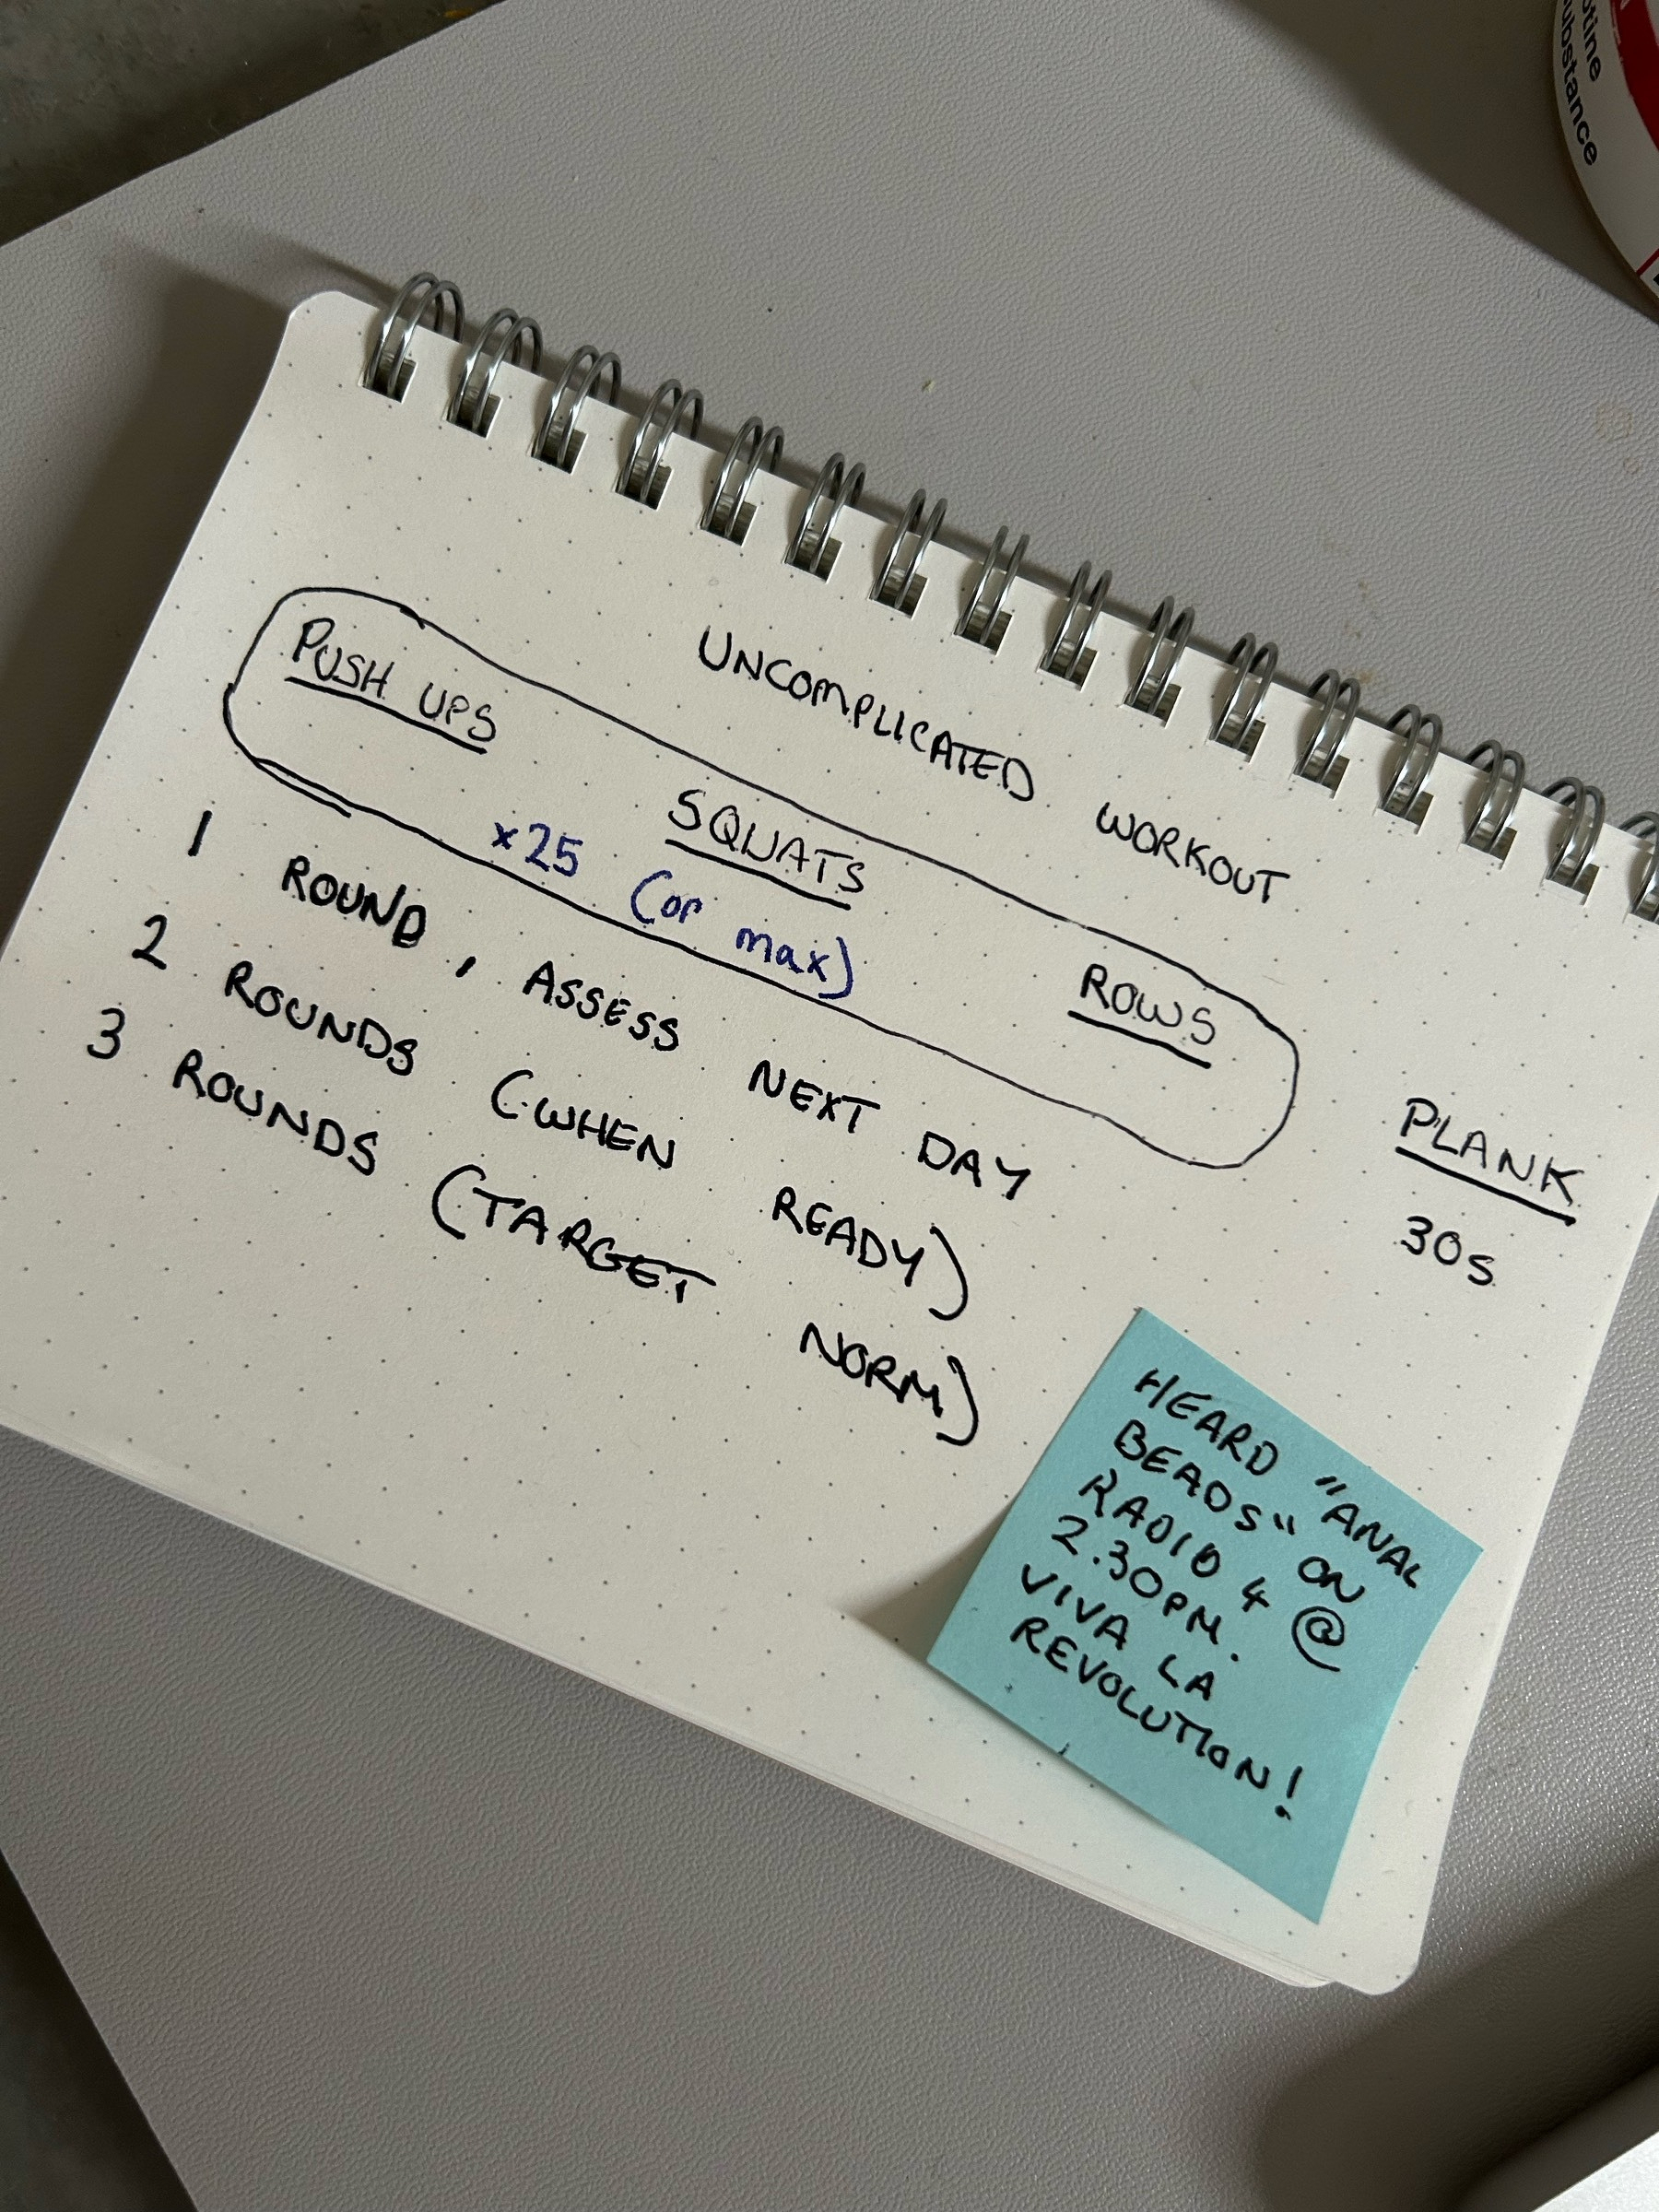 UNCOMPLICATED WORKOUT
PUSH UPS SQUATS ROWS PLANK
x25 (or max) 30s
1 ROUND, ASSESS NEXT DAY
2 ROUNDS (WHEN READY)
3 ROUNDS (TARGET NORM)
HEARD "ANAL
BEADS" ON
RADIO 4 @
2.30PM.
VIVA LA
REVOLUTION!
substance